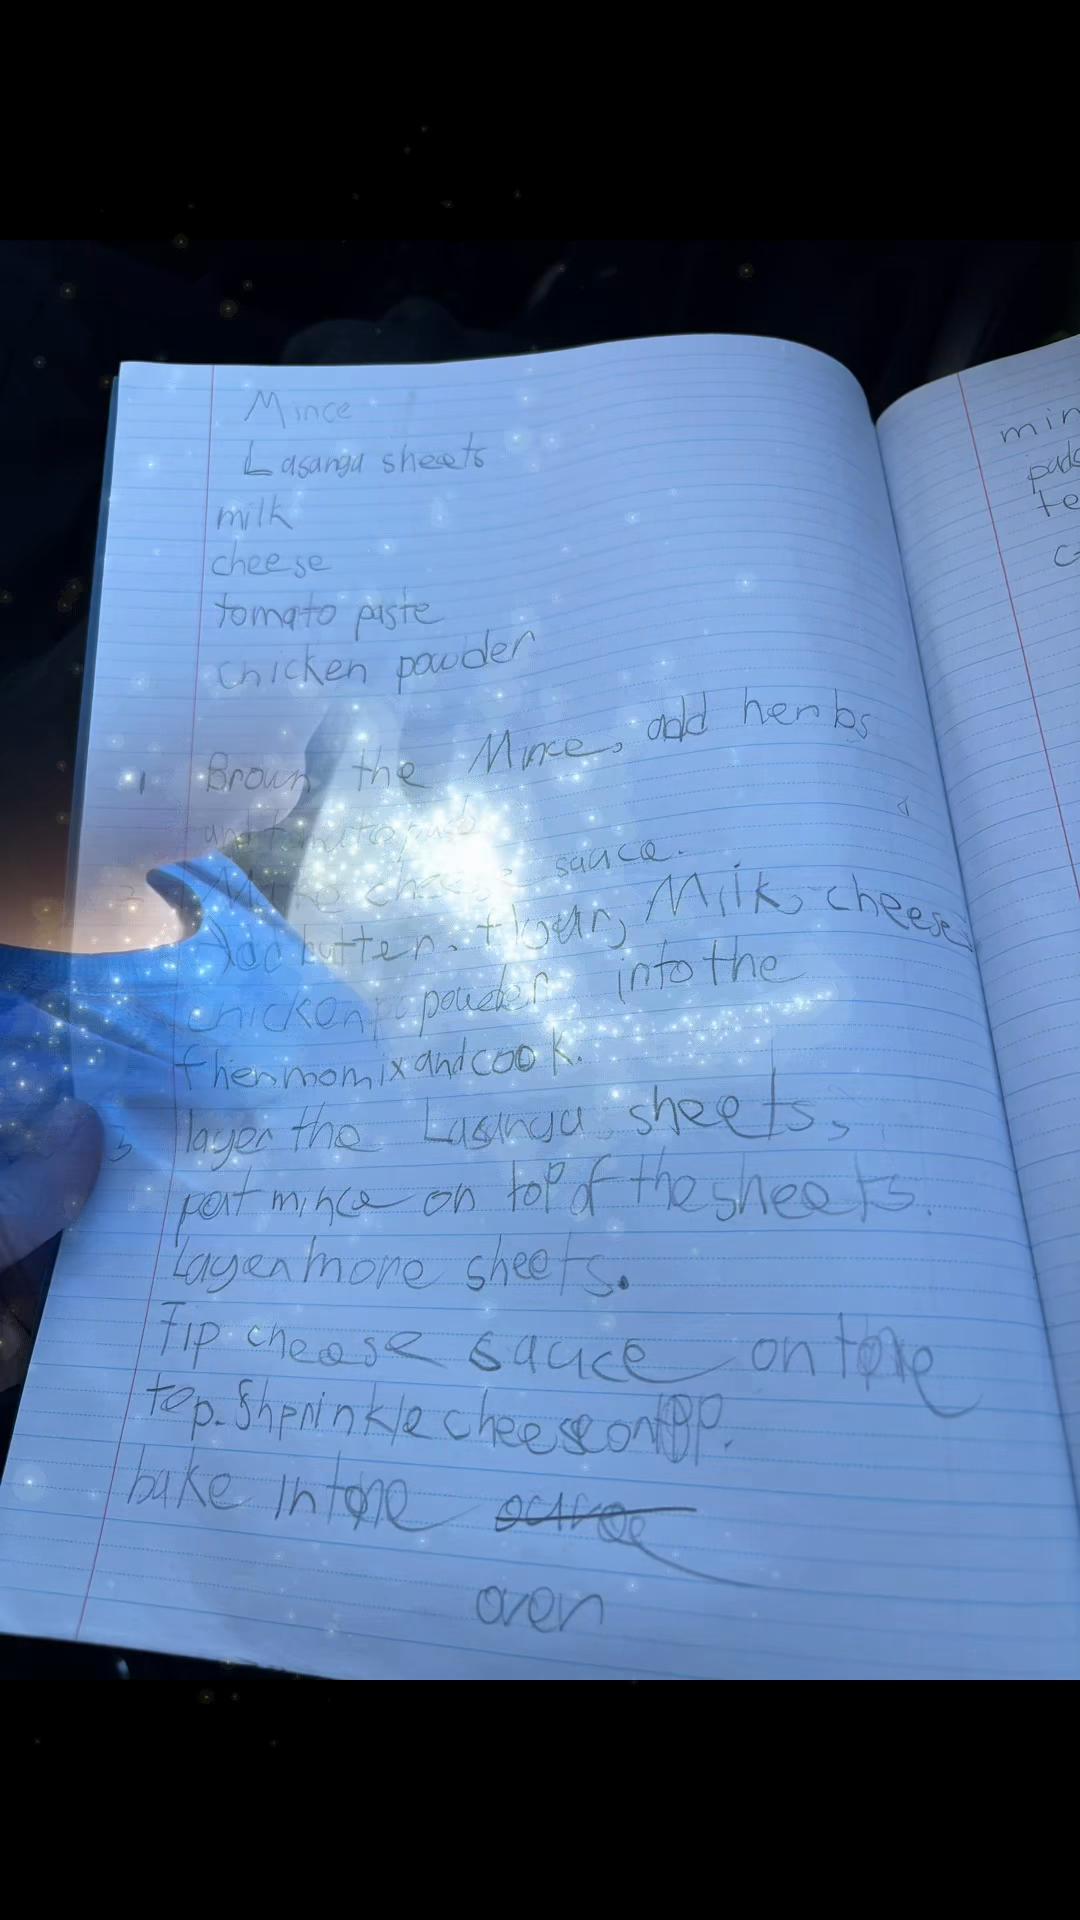 Mince
Lasanga sheets
milk
cheese
tomato paste
chicken powder
1 Brown the Mince, add herbs
and tomato
2 Make cheese sauce.
Add butter. flour, Milk, cheese,
chicken powder into the
thenmomix and cook.
3 layer the Lasanga sheets,
put mince on top of the sheets.
Layer more sheets.
Tip cheese sauce on the
top. Shprinkle cheese on top.
bake in the
oven
min
te